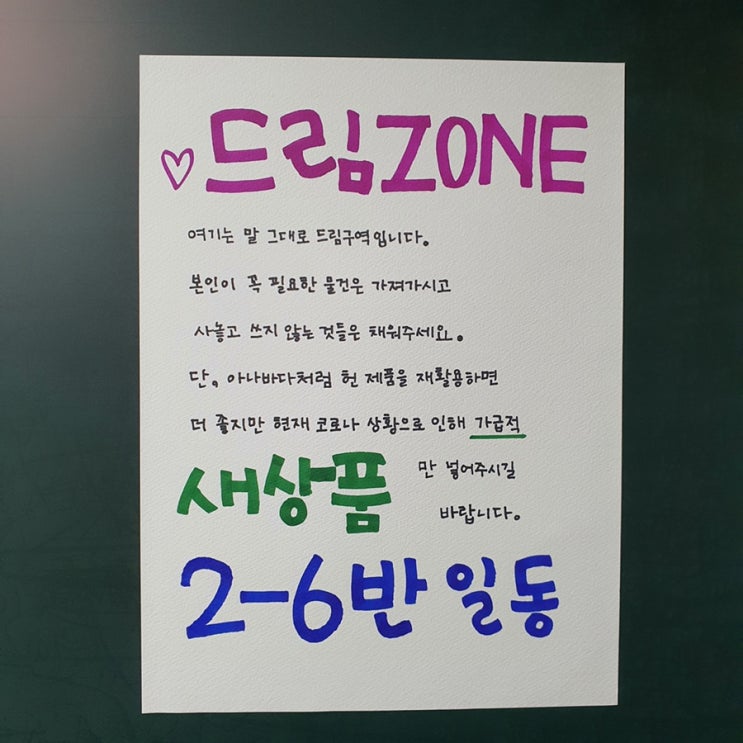 ♡드림ZONE
여기는 말 그대로 드림구역입니다.
본인이 꼭 필요한 물건은 가져가시고
사놓고 쓰지 않는 것들은 채워주세요.
단, 아나바다처럼 헌 제품을 재활용하면
더 좋지만 현재 코로나 상황으로 인해 가급적
새상품 만 넣어주시길
바랍니다.
2-6반 일동